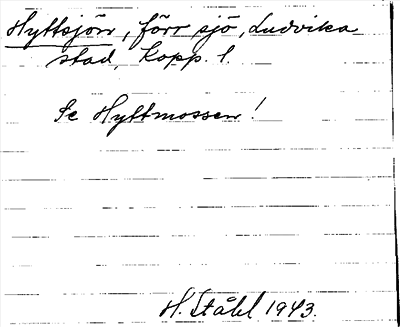 Hyttsjön, förr sjö, Ludvika
stad, Kopp. l.
Se Hyttmossen!
H. Ståhl 1943.